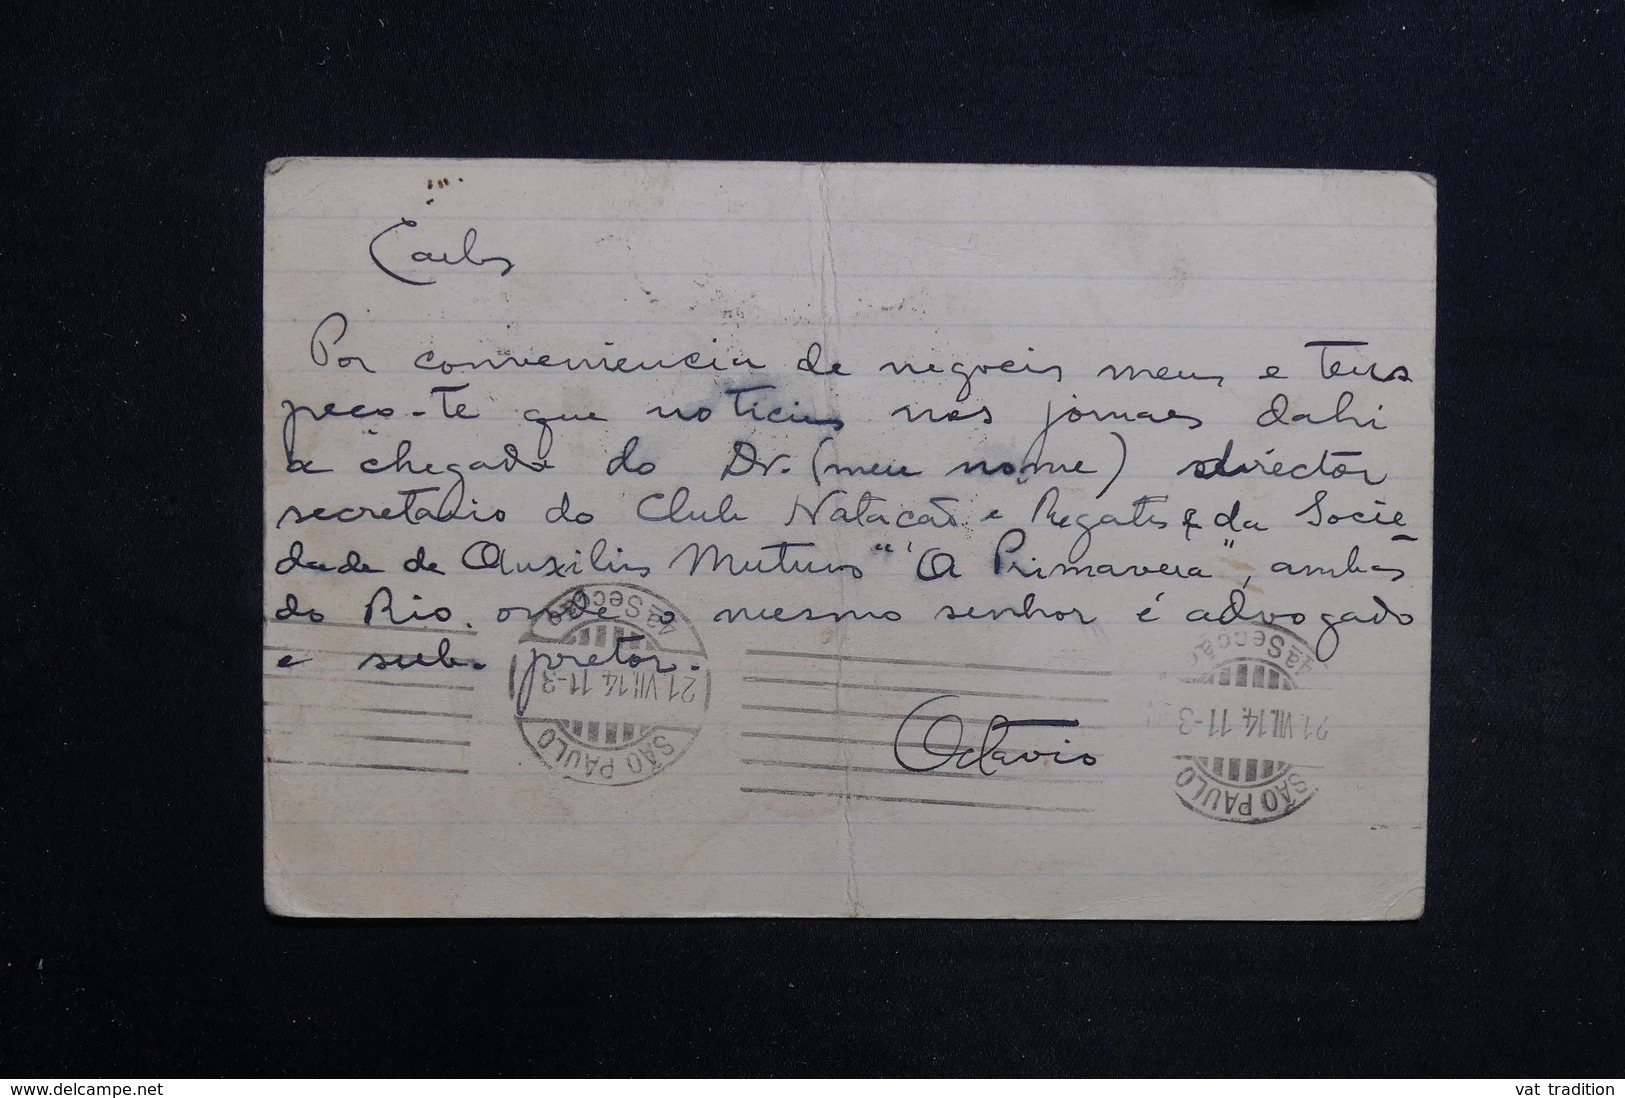 Carlos
Por conveniencia de negocios meus e teus
peco-te que noticies nos jornaes dahi
a chegada do Dr. (meu nome) director
secretario do Club Natacão e Regatas & da Socie-
dade de Auxilios Mutuos "A Primavera", ambas
do Rio, onde o mesmo senhor é advogado
e sub-pretor.
Octavio
4ª Secção
21.VII.14 11-3
SÃO PAULO
4ª Secção
21.VII.14 11-3
SÃO PAULO
www.delcampe.net
vat tradition